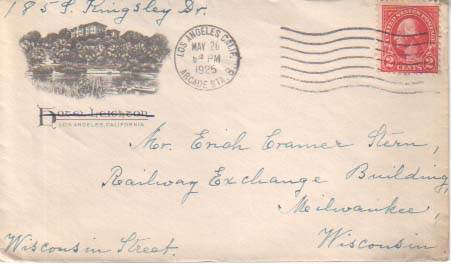 185 S. Kingsley Dr.
LOS ANGELES CALIF.
MAY 26
PM
1925
ARCADE STA.
UNITED STATES POSTAGE
2 CENTS 2
Hotel Leighton
LOS ANGELES, CALIFORNIA.
Mr. Erich Cramer Stern,
Railway Exchange Building,
Milwaukee,
Wisconsin Street. Wisconsin.